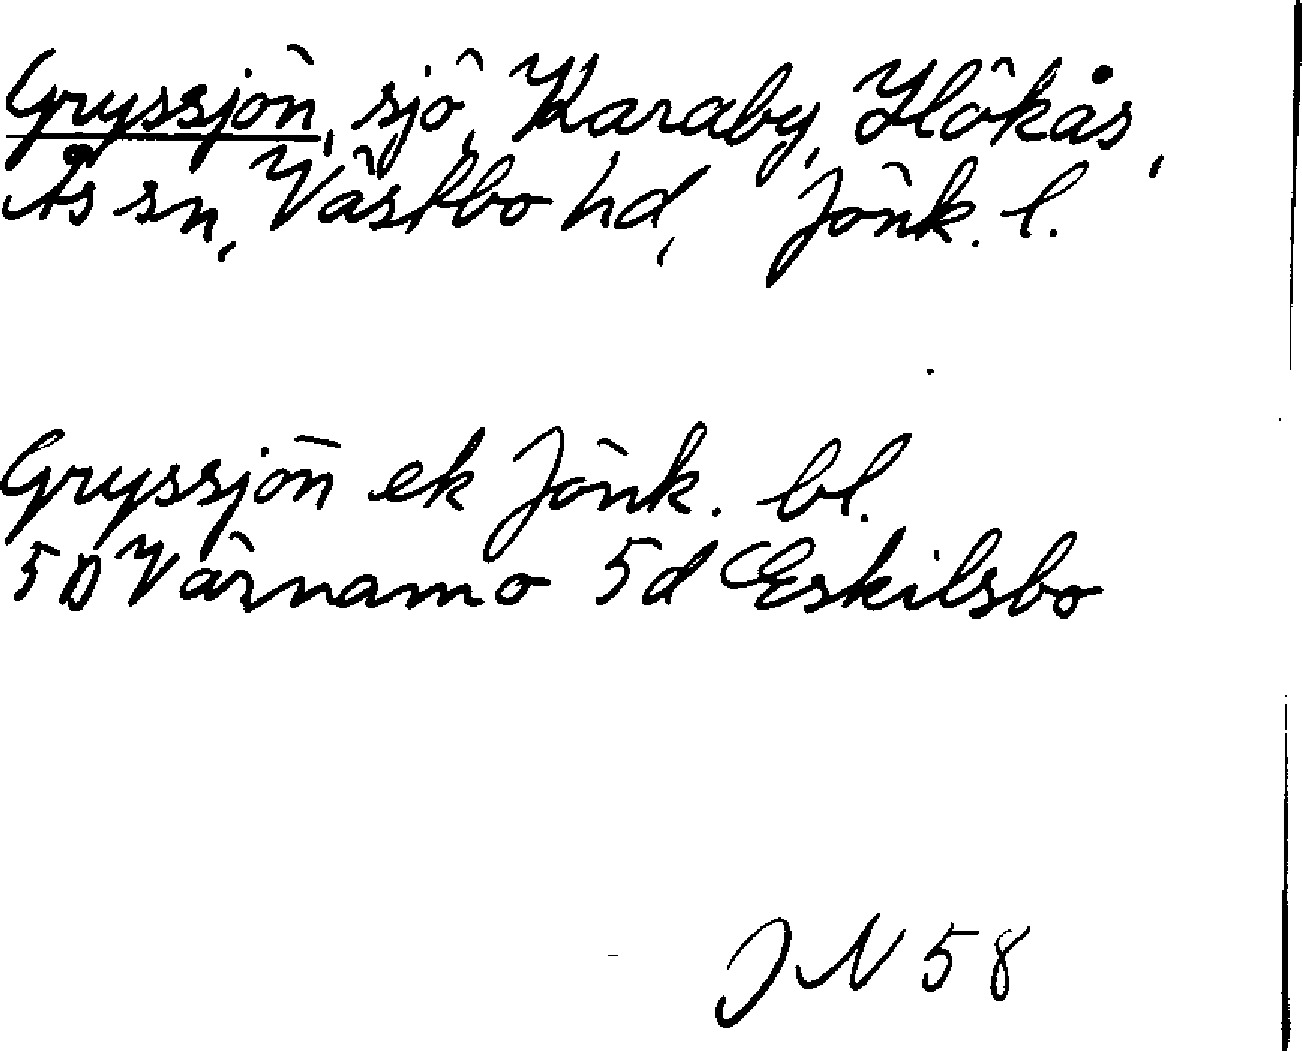 Gryssjön, sjö, Karaby, Hökås,
Ås sn, Västbo hd, Jönk. l.
Gryssjön ek Jönk. bl.
5D Värnamo 5d Eskilsbo
JN 58